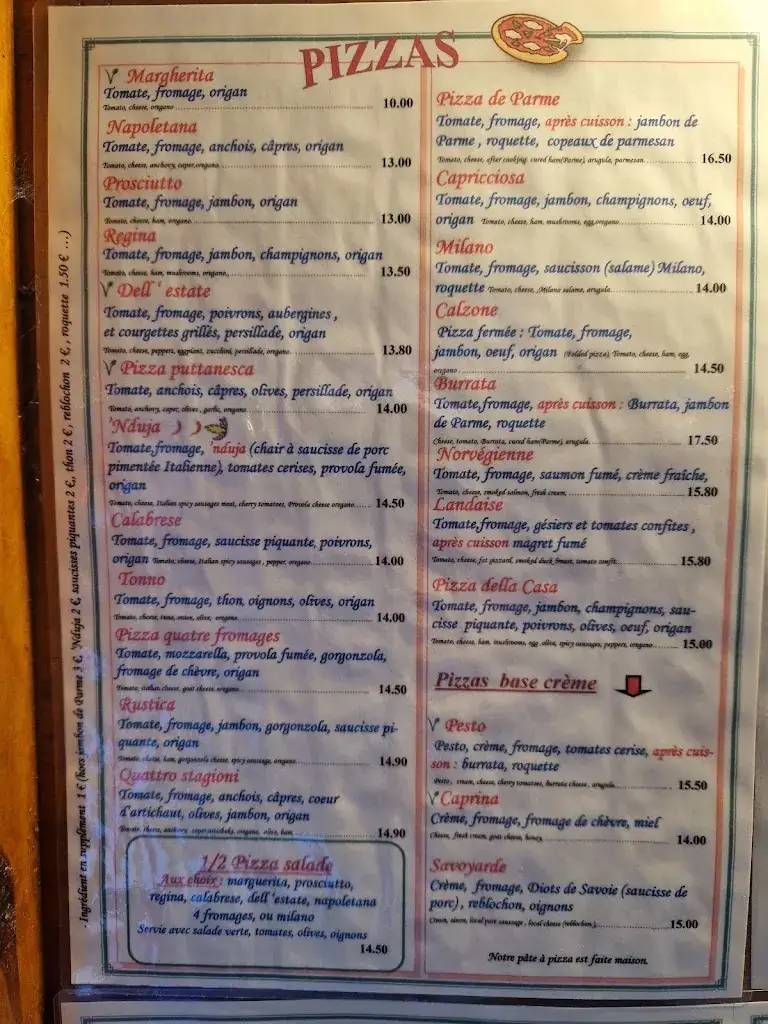 PIZZAS
Margherita
Tomate, fromage, origan
Tomato, cheese, oregano 10.00
Napoletana
Tomate, fromage, anchois, câpres, origan
Tomato, cheese, anchovy, caper, oregano 13.00
Prosciutto
Tomate, fromage, jambon, origan
Tomato, cheese, ham, oregano 13.00
Regina
Tomate, fromage, jambon, champignons, origan
Tomato, cheese, ham, mushrooms, oregano, 13.50
Dell' estate
Tomate, fromage, poivrons, aubergines,
et courgettes grillés, persillade, origan
Tomato, cheese, peppers, eggplant, zucchini, persillade, oregano 13.80
Pizza puttanesca
Tomate, anchois, câpres, olives, persillade, origan
Tomato, anchovy, caper, olives, garlic, oregano 14.00
'Nduja
Tomate,fromage, 'nduja (chair à saucisse de porc
pimentée Italienne), tomates cerises, provola fumée,
origan
Tomato, cheese, Italian spicy sausages meat, cherry tomatoes, Provola cheese oregano 14.50
Calabrese
Tomate, fromage, saucisse piquante, poivrons,
origan Tomato, cheese, Italian spicy sausages, pepper, oregano 14.00
Tonno
Tomate, fromage, thon, oignons, olives, origan
Tomato, cheese, tuna, onion, olive, oregano 14.00
Pizza quatre fromages
Tomate, mozzarella, provola fumée, gorgonzola,
fromage de chèvre, origan
Tomato, italian cheese, goat cheese, oregano 14.50
Rustica
Tomate, fromage, jambon, gorgonzola, saucisse pi-
quante, origan
Tomato, cheese, ham, gorgonzola cheese, spicy sausage, oregano 14.90
Quattro stagioni
Tomate, fromage, anchois, câpres, coeur
d'artichaut, olives, jambon, origan
Tomate, cheese, anchovy, caper, artichoke, oregano, olive, ham 14.90
1/2 Pizza salade
Aux choix : marguerita, prosciutto,
regina, calabrese, dell'estate, napoletana
4 fromages, ou milano
Servie avec salade verte, tomates, olives, oignons
14.50
Pizza de Parme
Tomate, fromage, après cuisson : jambon de
Parme, roquette, copeaux de parmesan
Tomato, cheese, after cooking: cured ham(Parme), arugula, parmesan 16.50
Capricciosa
Tomate, fromage, jambon, champignons, oeuf,
origan Tomato, cheese, ham, mushrooms, egg, oregano 14.00
Milano
Tomate, fromage, saucisson (salame) Milano,
roquette Tomato, cheese, ,Milano salame, arugula 14.00
Calzone
Pizza fermée : Tomate, fromage,
jambon, oeuf, origan (Folded pizza), Tomato, cheese, ham, egg,
oregano 14.50
Burrata
Tomate,fromage, après cuisson : Burrata, jambon
de Parme, roquette
Cheese, tomato, Burrata, cured ham(Parme), arugula 17.50
Norvégienne
Tomate, fromage, saumon fumé, crème fraîche,
Tomato, cheese, smoked salmon, fresh cream 15.80
Landaise
Tomate,fromage, gésiers et tomates confites,
après cuisson magret fumé
Tomato, cheese, fat gizzard, smoked duck breast, tomato confit 15.80
Pizza della Casa
Tomate, fromage, jambon, champignons, sau-
cisse piquante, poivrons, olives, oeuf, origan
Tomato, cheese, ham, mushrooms, egg, olive, spicy sausages, peppers, oregano 15.00
Pizzas base crème
Pesto
Pesto, crème, fromage, tomates cerise, après cuis-
son : burrata, roquette
Pesto, cream, cheese, cherry tomatoes, burrata cheese, arugula 15.50
Caprina
Crème, fromage, fromage de chèvre, miel
Cheese, fresh cream, goat cheese, honey 14.00
Savoyarde
Crème, fromage, Diots de Savoie (saucisse de
porc), reblochon, oignons
Cream, onion, local pork sausage, local cheese (reblochon) 15.00
Notre pâte à pizza est faite maison.
- Ingrédient en supplément 1 € (hors jambon de Parme 3 €, 'Nduja 2 €, saucisses piquantes 2 €, thon 2 €, reblochon 2 €, roquette 1.50 € ...)